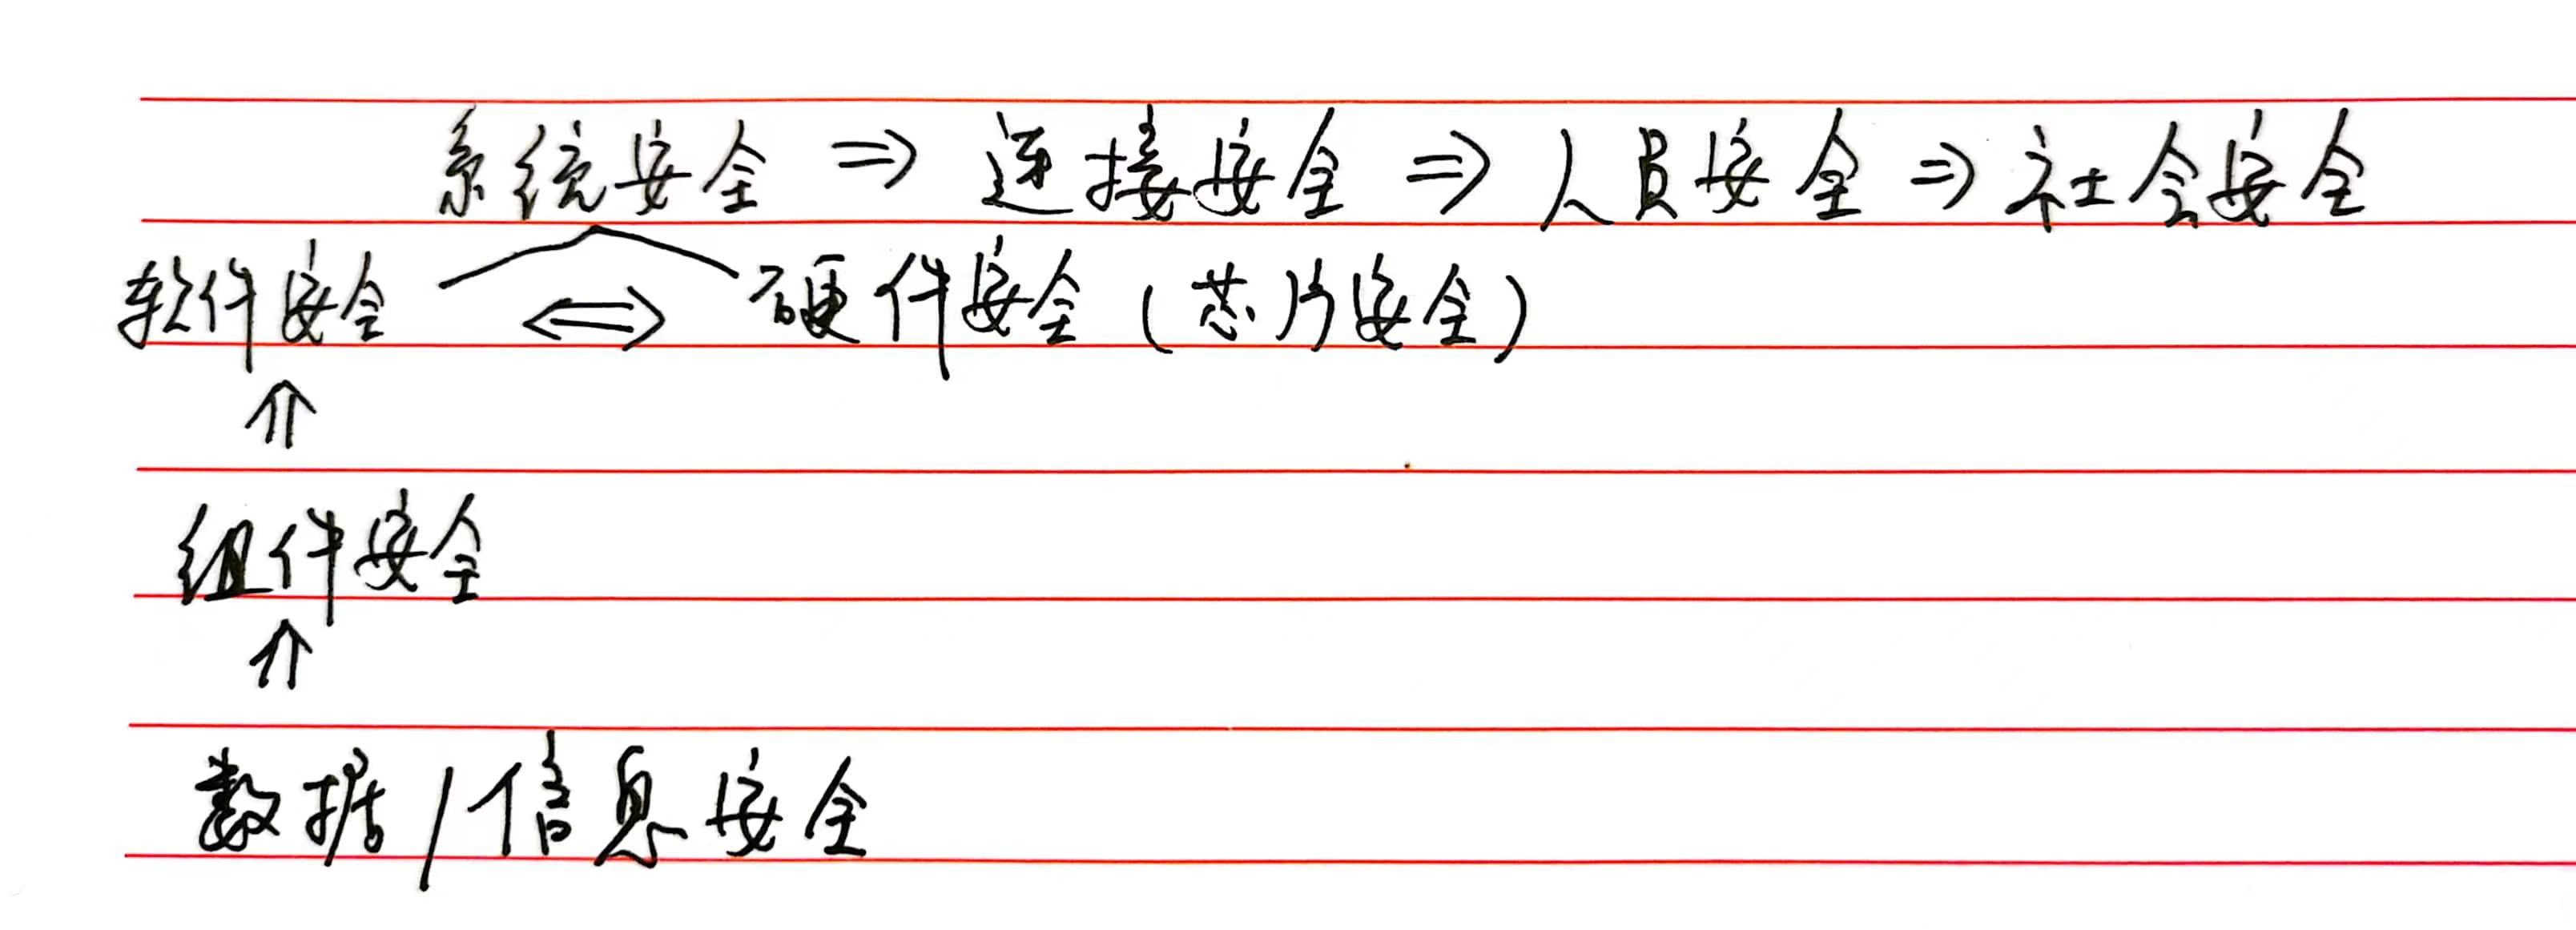 系统安全 ⇒ 连接安全 ⇒ 人员安全 ⇒ 社会安全
软件安全 ⇔ 硬件安全（芯片安全）
⇑
组件安全
⇑
数据/信息安全